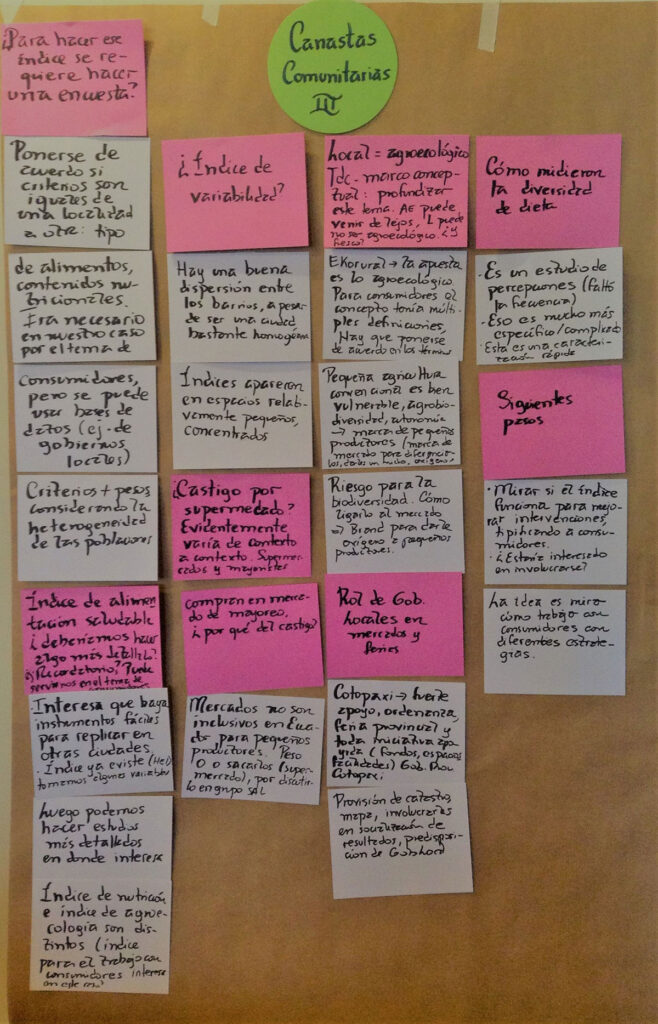 Canastas
Comunitarias
III
¿Para hacer ese
índice se re-
quiere hacer
una encuesta?
Ponerse de
acuerdo si
criterios son
iguales de
una localidad
a otra: tipo
de alimentos,
contenidos nu-
tricionales.
Era necesario
en nuestro caso
por el tema de
consumidores,
pero se puede
usar bases de
datos (ej. de
gobiernos
locales)
Criterios + pesos
considerando la
heterogeneidad
de las poblaciones
Índice de alimen
tación saludable
¿deberíamos hacer
algo más detallado?
¿Recordatorio? Puede
servirnos en el tema de
Interesa que haya
instrumentos fáciles
para replicar en
otras ciudades.
· Índice ya existe (HEI)
tomamos algunas variables
Luego podemos
hacer estudios
más detallados
en donde interese
Índice de nutrición
e índice de agroe-
cología son dis-
tintos (índice
para el trabajo con
consumidores interesa
en este caso)
¿Índice de
variabilidad?
Hay una buena
dispersión entre
los barrios, a pesar
de ser una ciudad
bastante homogénea
Índices aparecen
en espacios relati-
vamente pequeños,
concentrados
¿Castigo por
supermercado?
Evidentemente
varía de contexto
a contexto. Superme-
rcados y mayoristas
compran en merca-
do de mayoreo,
¿por qué del castigo?
Mercados no son
inclusivos en Ecua
dor para pequeños
productores. Peso
0 o sacarlos (super-
mercado), por discutir
lo en grupo SAL
Local = agroecológico
Tdc - marco concep-
tual: profundizar
este tema. AE puede
venir de lejos, L puede
no ser agroecológico. ¿y
fresco?
EkoRural → la apuesta
es lo agroecológico.
Para consumidores el
concepto tenía múlti-
ples definiciones,
Hay que ponerse
de acuerdo en los términos
Pequeña agricultura
convencional es bien
vulnerable, agrobio-
diversidad, autonomía
→ marca de pequeños
productores (marca de
mercado para diferenciar-
los, darles un nicho, origen)
Riesgo para la
biodiversidad. Cómo
ligarlo al mercado
→ Brand para darle
origen a pequeños
productores.
Rol de Gob.
locales en
mercados y
ferias
Cotopaxi → fuerte
apoyo, ordenanza,
feria provincial y
toda iniciativa apo-
yada (fondos, espacios
facilidades) Gob. Prov.
Cotopaxi
Provisión de catastro,
mapa, involucrarlas
en socialización de
resultados, predisposi-
ción de Gob Local
Cómo midieron
la diversidad
de dieta
· Es un estudio de
percepciones (faltó
la frecuencia)
· Eso es mucho más
específico/complicado
· Esta es una caracteri-
zación rápida
Siguientes
pasos
· Mirar si el índice
funciona para mejo-
rar intervenciones,
tipificando a consu-
midores.
· ¿Estaría interesado
en involucrarse?
La idea es mirar
cómo trabajo con
consumidores con
diferentes estrate-
gias.